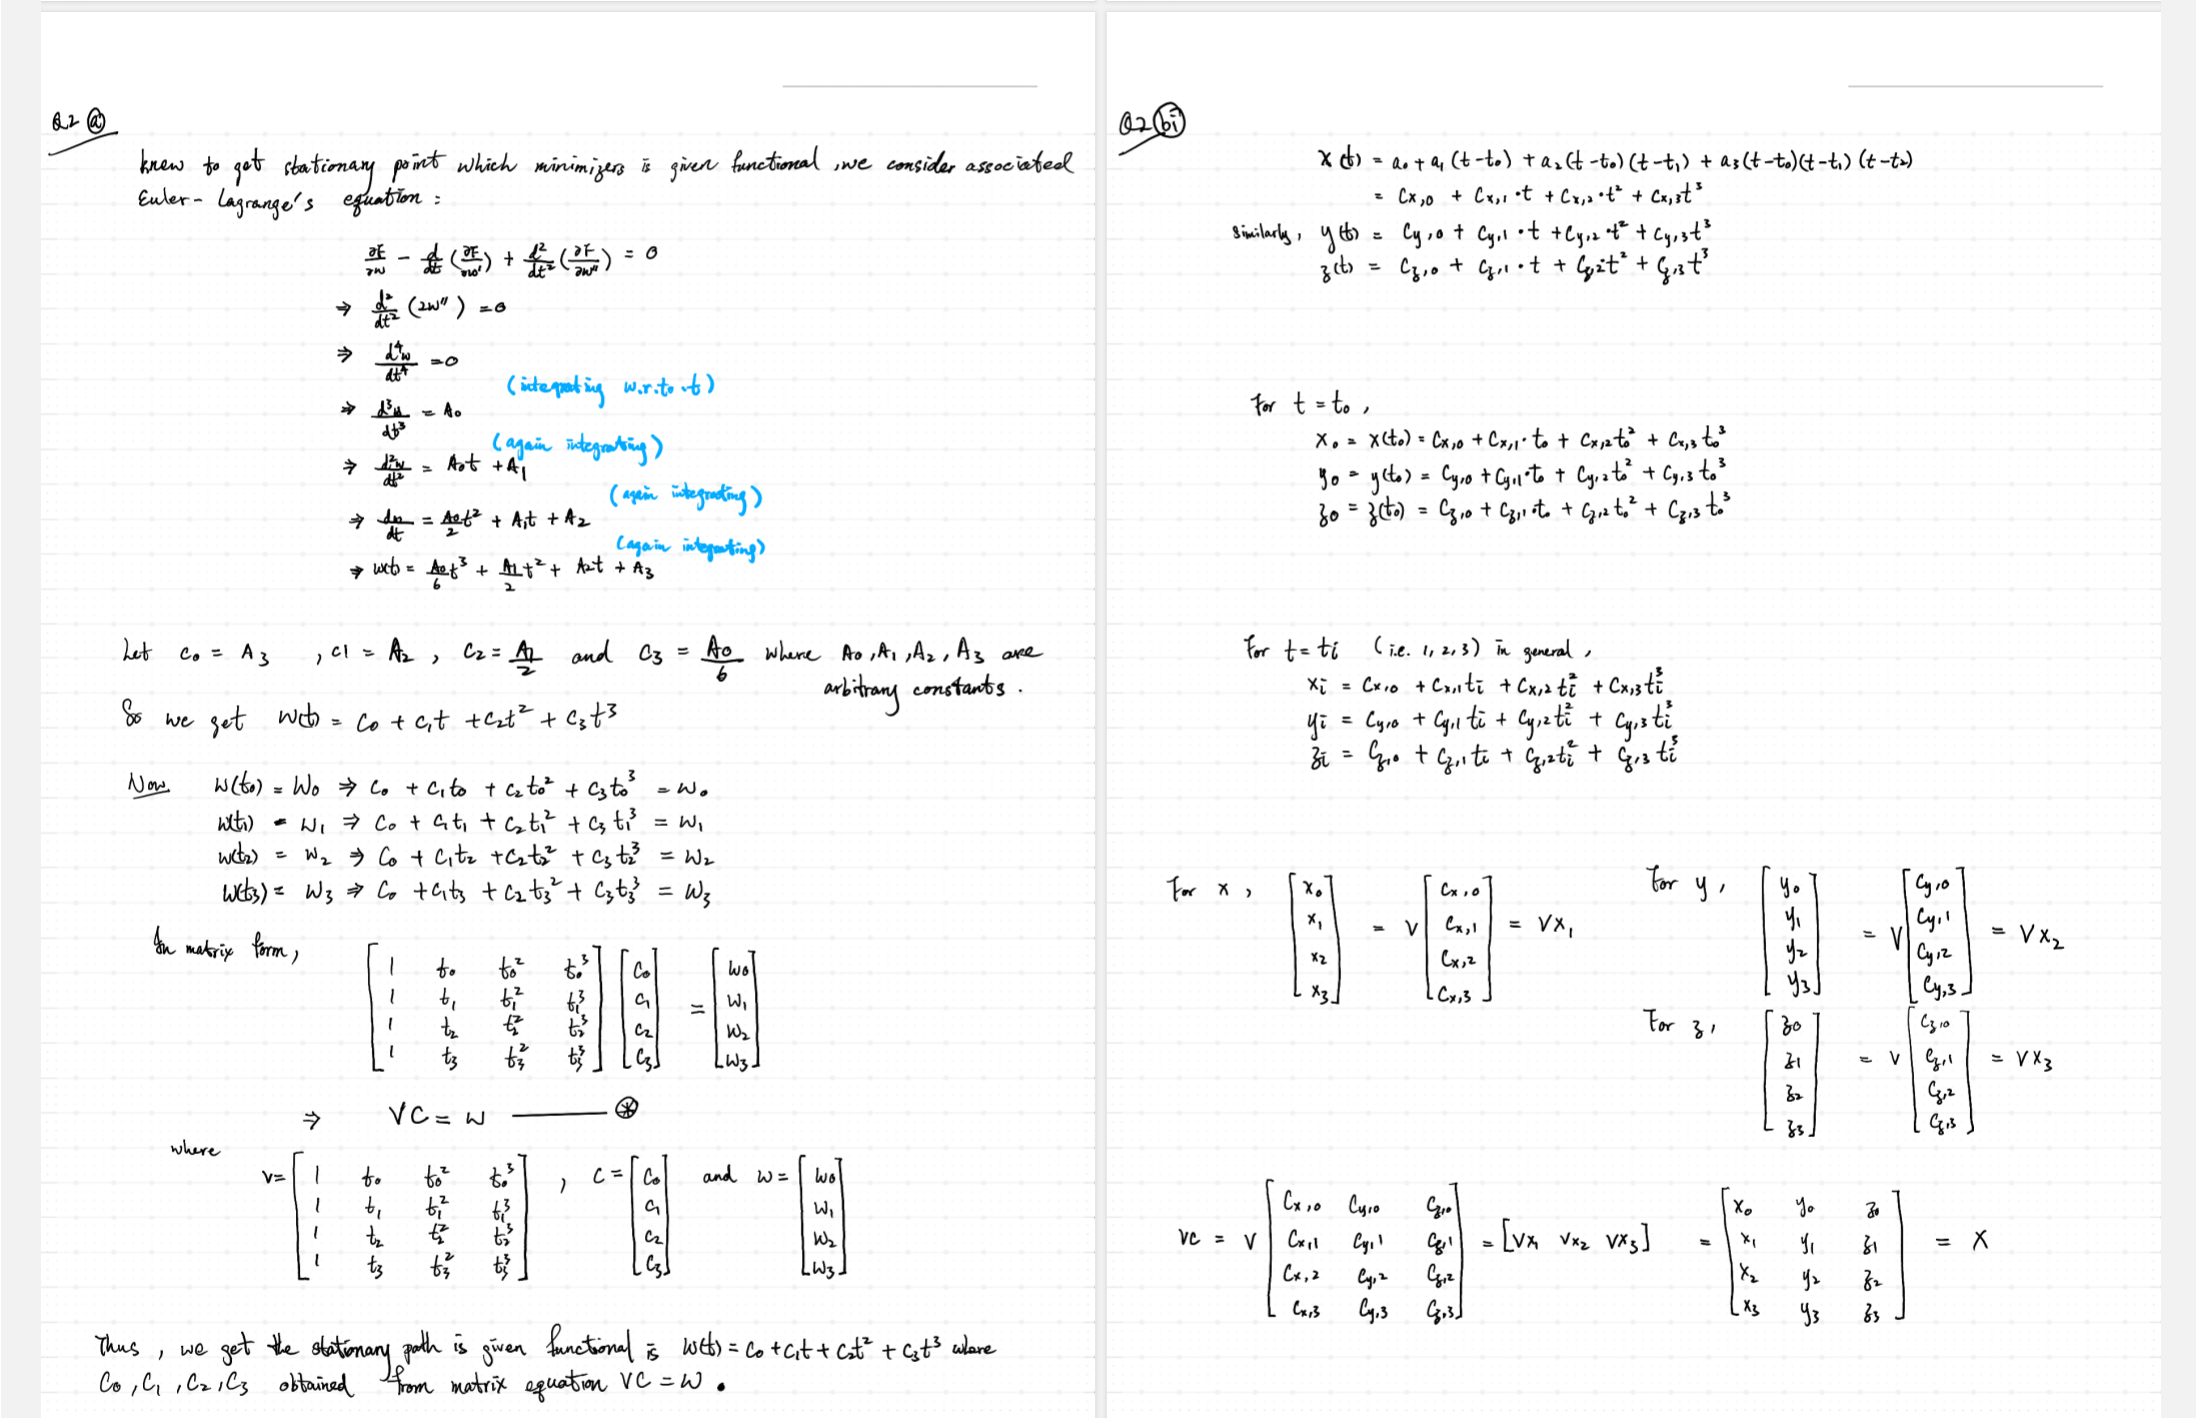 Q2 ⓐ
knew to get stationary point which minimizers is given functional, we consider associated
Euler-Lagrange's equation:
∂F/∂w - d/dt (∂F/∂w') + d²/dt² (∂F/∂w'') = 0
⇒ d²/dt² (2w'') = 0
⇒ d⁴w/dt⁴ = 0
(integrating w.r.to.t)
⇒ d³w/dt³ = A₀
(again integrating)
⇒ d²w/dt² = A₀t + A₁
(again integrating)
⇒ dw/dt = A₀/2 t² + A₁t + A₂
(again integrating)
⇒ w(t) = A₀/6 t³ + A₁/2 t² + A₂t + A₃
Let c₀ = A₃, c1 = A₂, c₂ = A₁/2 and c₃ = A₀/6 where A₀, A₁, A₂, A₃ are
arbitrary constants.
So we get w(t) = c₀ + c₁t + c₂t² + c₃t³
Now w(t₀) = w₀ ⇒ c₀ + c₁t₀ + c₂t₀² + c₃t₀³ = w₀
w(t₁) = w₁ ⇒ c₀ + c₁t₁ + c₂t₁² + c₃t₁³ = w₁
w(t₂) = w₂ ⇒ c₀ + c₁t₂ + c₂t₂² + c₃t₂³ = w₂
w(t₃) = w₃ ⇒ c₀ + c₁t₃ + c₂t₃² + c₃t₃³ = w₃
In matrix form,
[1 t₀ t₀² t₀³] [c₀] [w₀]
[1 t₁ t₁² t₁³] [c₁] = [w₁]
[1 t₂ t₂² t₂³] [c₂] [w₂]
[1 t₃ t₃² t₃³] [c₃] [w₃]
⇒ VC = W ——— ⊛
where
V = [1 t₀ t₀² t₀³], C = [c₀] and w = [w₀]
[1 t₁ t₁² t₁³] [c₁] [w₁]
[1 t₂ t₂² t₂³] [c₂] [w₂]
[1 t₃ t₃² t₃³] [c₃] [w₃]
Thus, we get the stationary path is given functional is w(t) = c₀ + c₁t + c₂t² + c₃t³ where
c₀, c₁, c₂, c₃ obtained from matrix equation VC = W.
Q2 (bi)
x(t) = a₀ + a₁(t-t₀) + a₂(t-t₀)(t-t₁) + a₃(t-t₀)(t-t₁)(t-t₂)
= Cx,0 + Cx,1·t + Cx,2·t² + Cx,3t³
Similarly, y(t) = Cy,0 + Cy,1·t + Cy,2·t² + Cy,3t³
z(t) = Cz,0 + Cz,1·t + Cz,2t² + Cz,3t³
For t = t₀,
x₀ = x(t₀) = Cx,0 + Cx,1·t₀ + Cx,2t₀² + Cx,3t₀³
y₀ = y(t₀) = Cy,0 + Cy,1·t₀ + Cy,2t₀² + Cy,3t₀³
z₀ = z(t₀) = Cz,0 + Cz,1·t₀ + Cz,2t₀² + Cz,3t₀³
For t = ti (i.e. 1, 2, 3) in general,
xi = Cx,0 + Cx,1ti + Cx,2ti² + Cx,3ti³
yi = Cy,0 + Cy,1ti + Cy,2ti² + Cy,3ti³
zi = Cz,0 + Cz,1ti + Cz,2ti² + Cz,3ti³
For x, [x₀] [Cx,0]
[x₁] = V [Cx,1] = VX₁
[x₂] [Cx,2]
[x₃] [Cx,3]
For y, [y₀] [Cy,0]
[y₁] = V [Cy,1] = VX₂
[y₂] [Cy,2]
[y₃] [Cy,3]
For z, [z0] [Cz,0]
[z1] = V [Cz,1] = VX₃
[z2] [Cz,2]
[z3] [Cz,3]
VC = V [Cx,0 Cy,0 Cz,0] = [VX₁ VX₂ VX₃] = [x₀ y₀ z₀] = X
[Cx,1 Cy,1 Cz,1] [x₁ y₁ z₁]
[Cx,2 Cy,2 Cz,2] [x₂ y₂ z₂]
[Cx,3 Cy,3 Cz,3] [x₃ y₃ z₃]